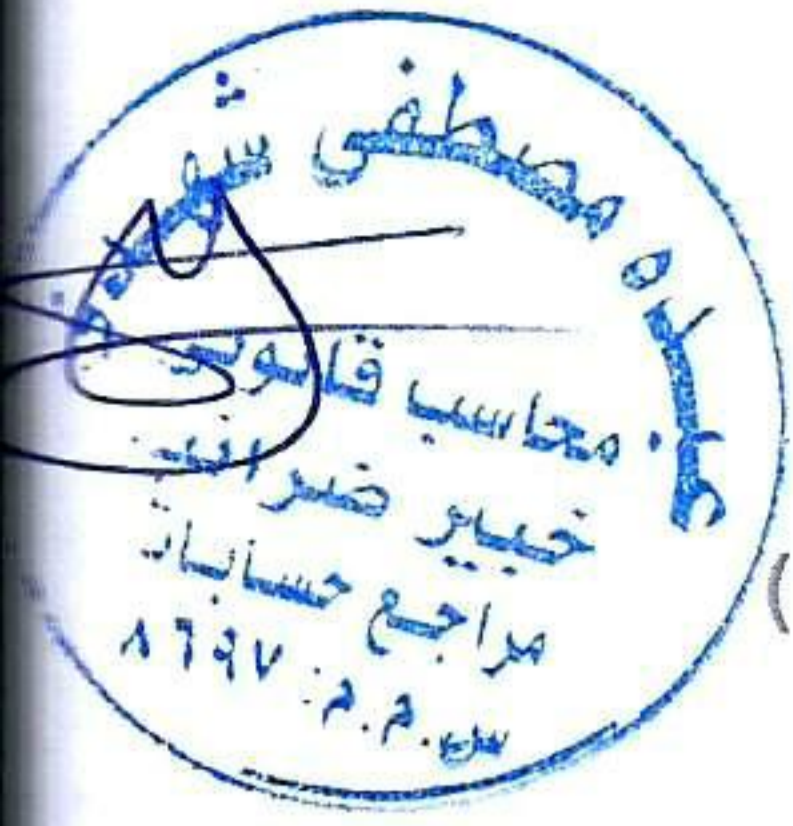 عبده مصطفى
محاسب قانونى
خبير ضرائب
مراجع حسابات
س.م.م: ٨٦٩٧